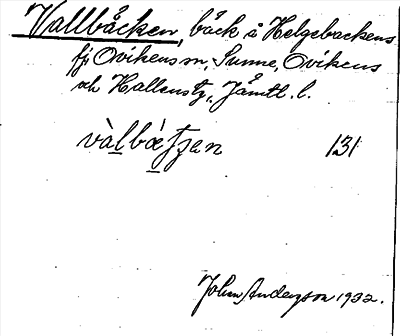 Vallbäcken, bäck å Helgebackens
fj Ovikens sn, Sunne, Ovikens
och Hallens tg, Jämtl. l.
131
John Anderzson 1932.